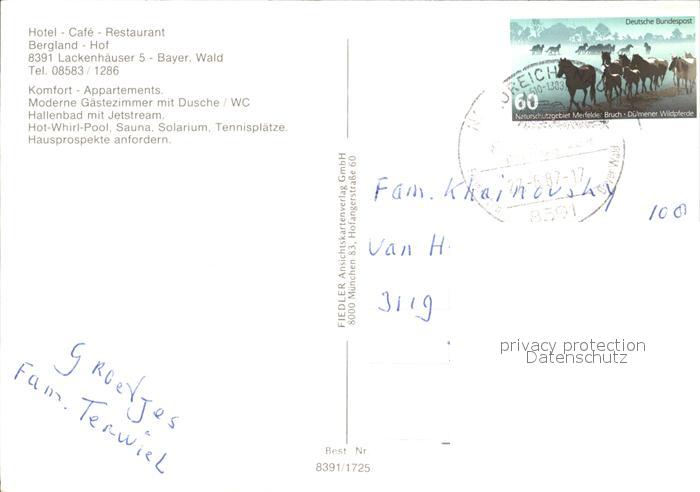 Hotel - Café - Restaurant
Bergland - Hof
8391 Lackenhäuser 5 - Bayer. Wald
Tel. 08583 / 1286
Komfort - Appartements.
Moderne Gästezimmer mit Dusche / WC
Hallenbad mit Jetstream.
Hot-Whirl-Pool, Sauna, Solarium, Tennisplätze.
Hausprospekte anfordern.
Groetjes
Fam. Terwiel
FIEDLER Ansichtskartenverlag GmbH
8000 München 83, Hofangerstraße 60
Best Nr
8391/1725
Deutsche Bundespost
60
Naturschutzgebiet Merfelder Bruch - Dülmener Wildpferde
8391
Fam. Khainovsky
108
van H
3119
privacy protection
Datenschutz